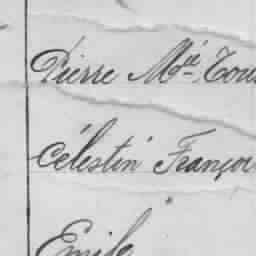 Pierre Mie Tous
Célestin François
Emile